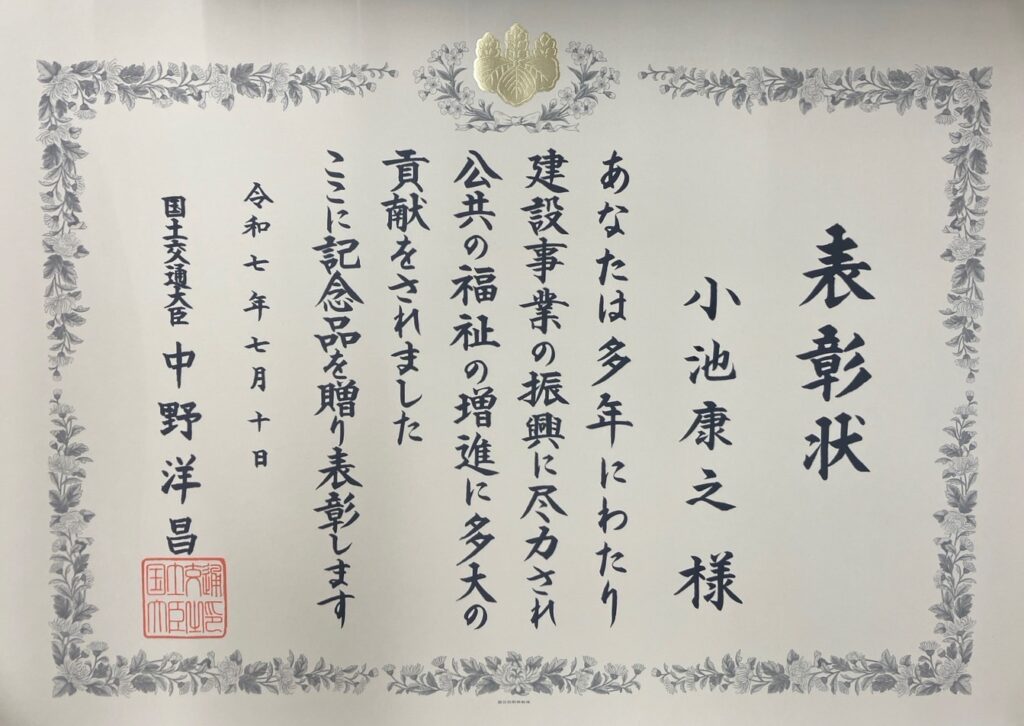 表彰状
小池康之 様
あなたは多年にわたり
建設事業の振興に尽力され
公共の福祉の増進に多大の
貢献をされました
ここに記念品を贈り表彰します
令和七年七月十日
国土交通大臣 中野洋昌